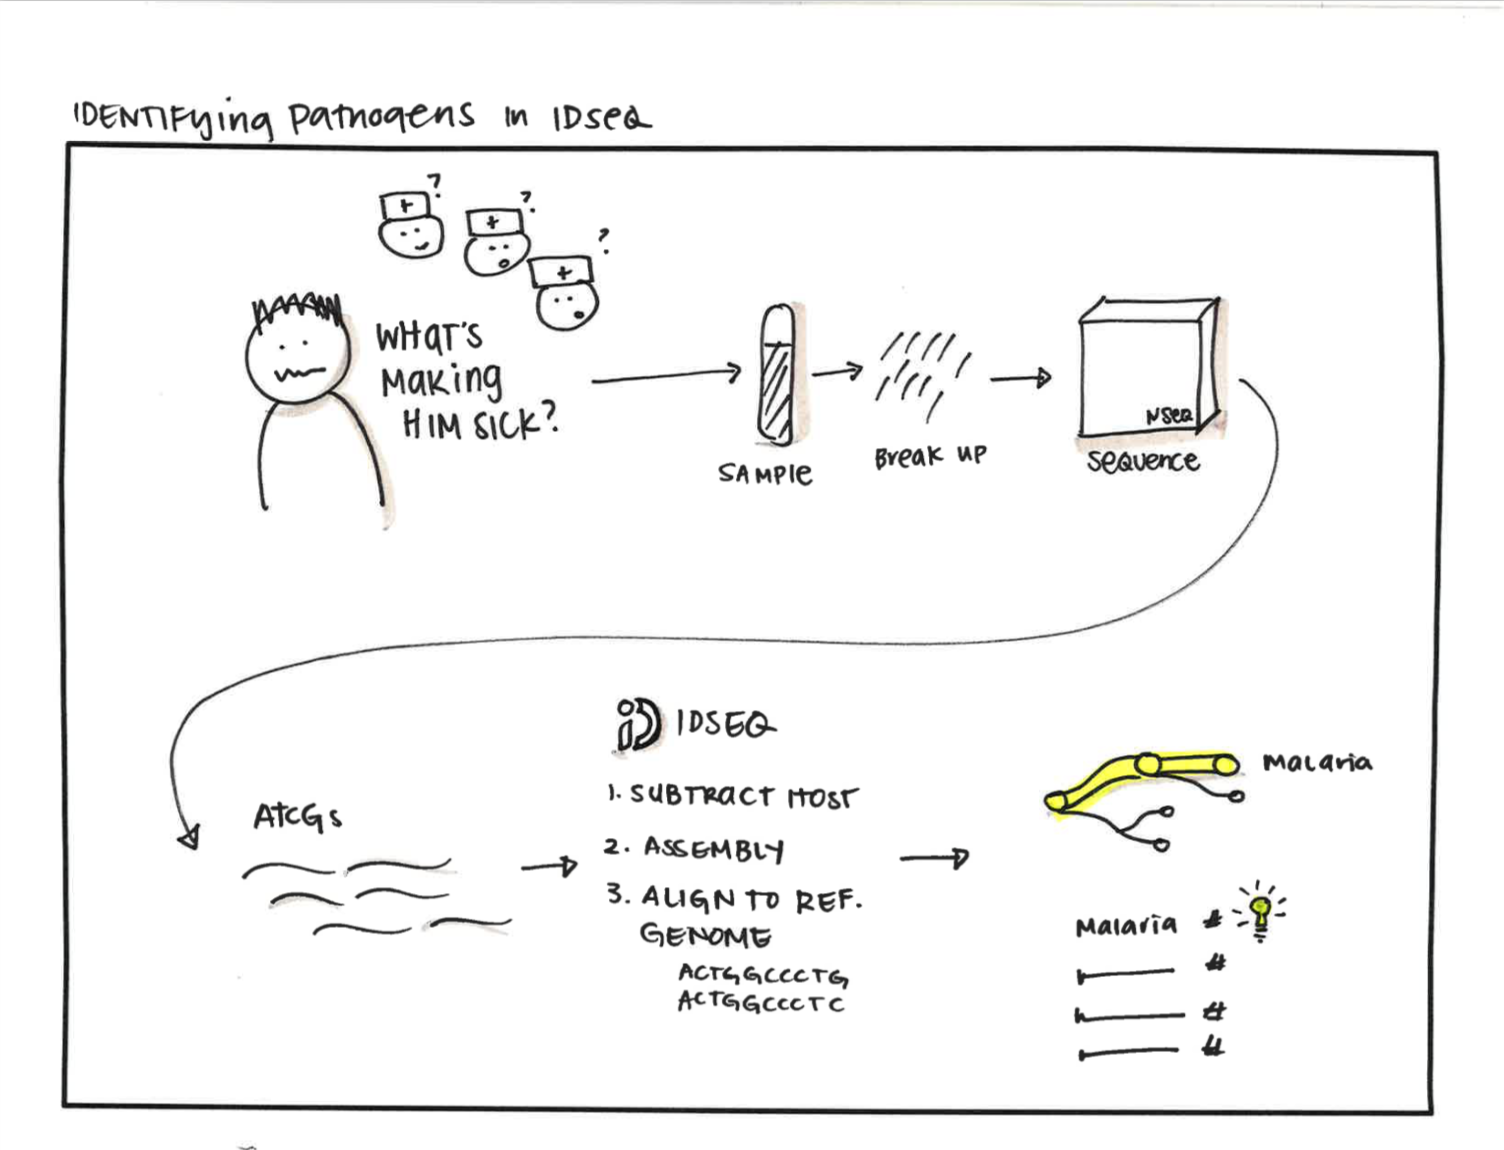 IDENTIFying Pathogens in IDseQ
?
?
?
+
+
+
WHaT'S
MaKing
HIM SICK?
SAMPlE
Break up
NSeQ
SeQuence
ATCGs
iD IDSEQ
1. SUBTRACT HOST
2. ASSEMBLY
3. ALIGN TO REF.
GENOME
ACTGGCCCTG
ACTGGCCCTC
Malaria
Malaria #
#
#
#